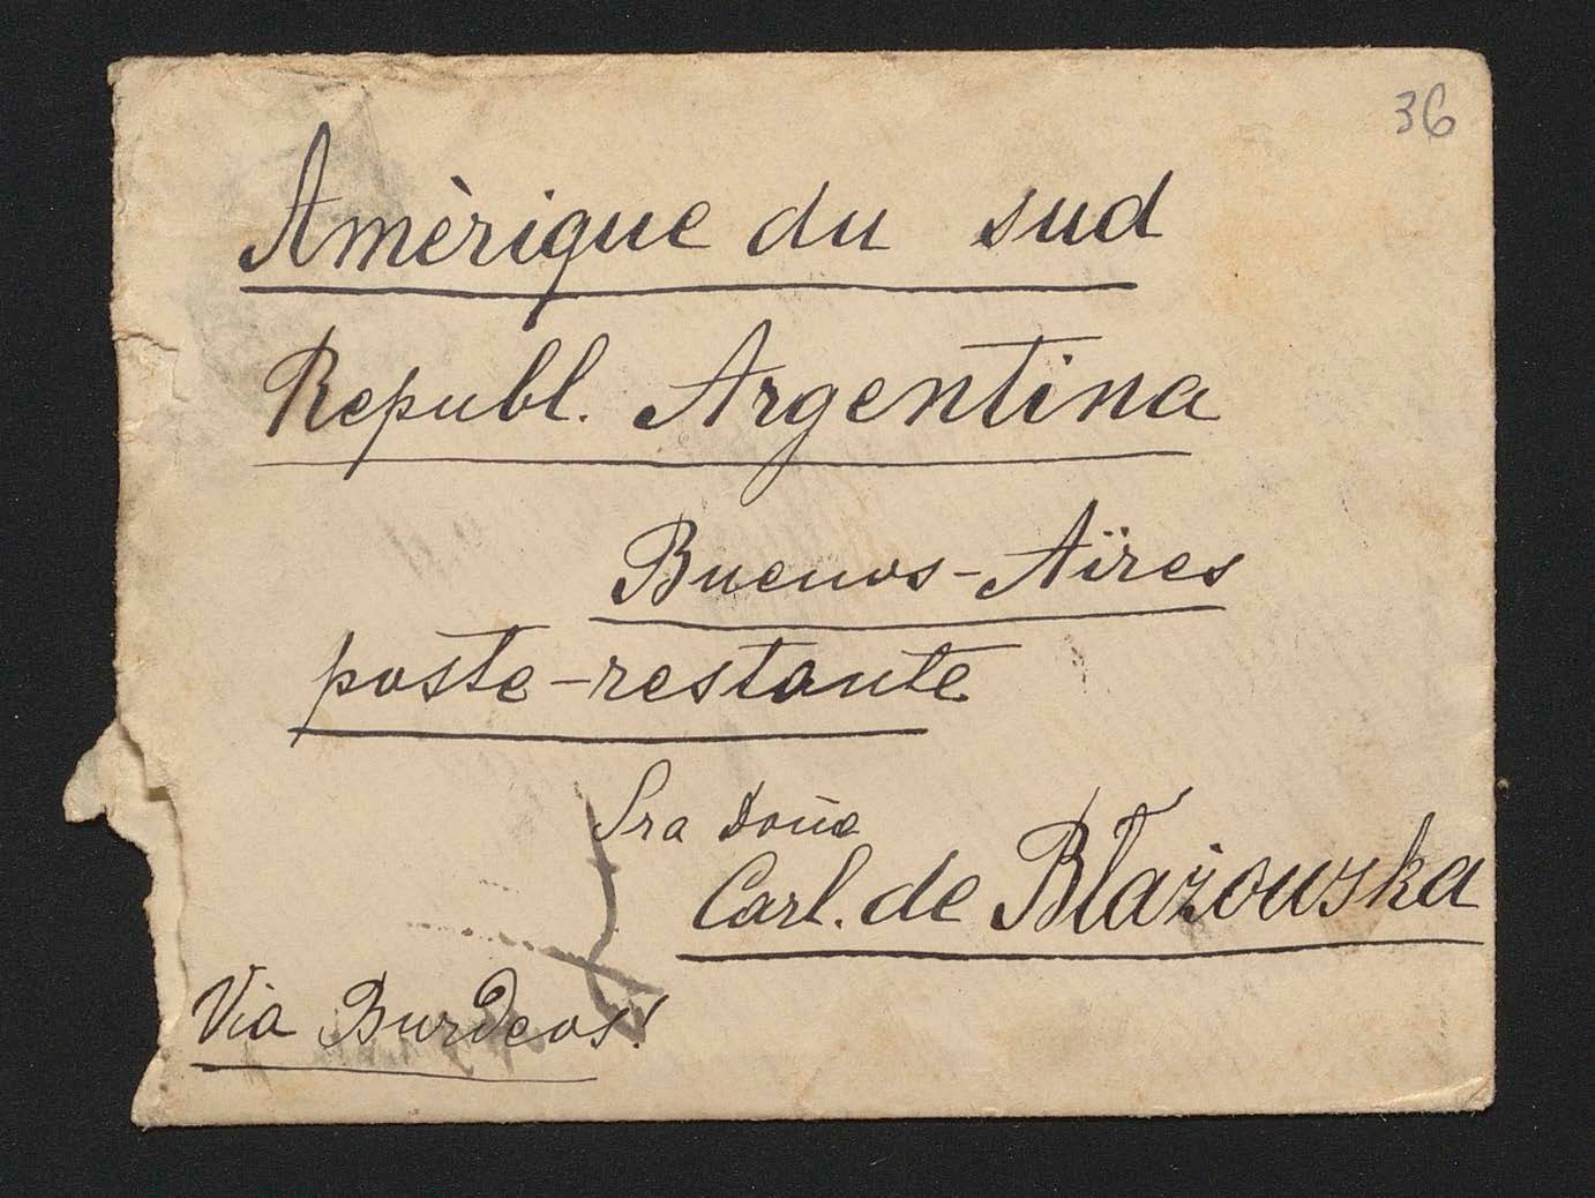 36
Amèrique du sud
Republ. Argentina
Buenos-Aïres
poste-restante
Sra Doña
Carl. de Błażowska
Via Burdeos!